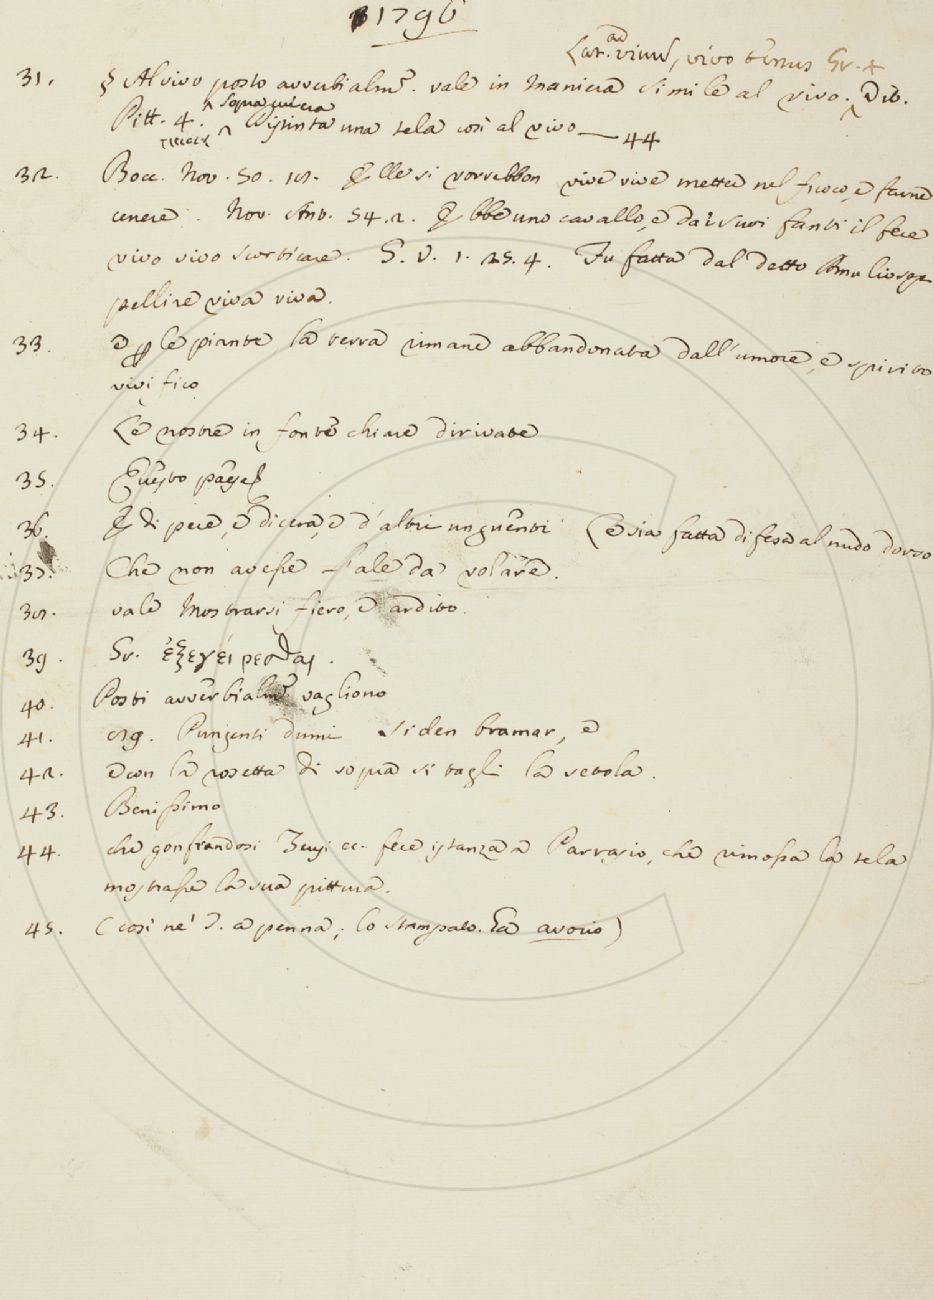 1796
Lat. ad vivum, vivo tenus Gr. +
31. § Al vivo posto avverbialmte. vale in Maniera simile al vivo. Dit.
Pitt. 4. sopra cui era dipinta una tela così al vivo — 44
32. Bocc. Nov. 50. 18. Elle si vorrebbon vive vive metter nel fuoco, e farne
cenere. Nov. Ant. 54. 2. Ebbe uno cavallo, e da' suoi fanti il fece
vivo vivo scorticare. G. V. 1. 25. 4. Fu fatta dal detto Amulio sop
pellire viva viva.
33. e p le piante la terra rimane abbandonata dall'umore, e spirito
vivifico
34. Le nostre in fonte chiare dirivate
35. Questo
36. E di pece, e di cera, e d'altri unguenti Le sia fatta difesa al nudo dorso
37. Che non avesse l'ale da volare.
38. vale Mostrarsi fiero, e ardito.
39. Gr. ἐξεγείρεσθαι.
40. Posti avverbialmte vagliono
41. Pungenti dumi si den bramar, e
42. e con la rosetta di sopra si tagli la setola.
43. Benissimo
44. che gonfiandosi Zeusi ec. fece istanza a Parrasio, che rimossa la tela
mostrasse la sua pittura.
45. (così ne' T. a penna; lo stampato. ha avorio)